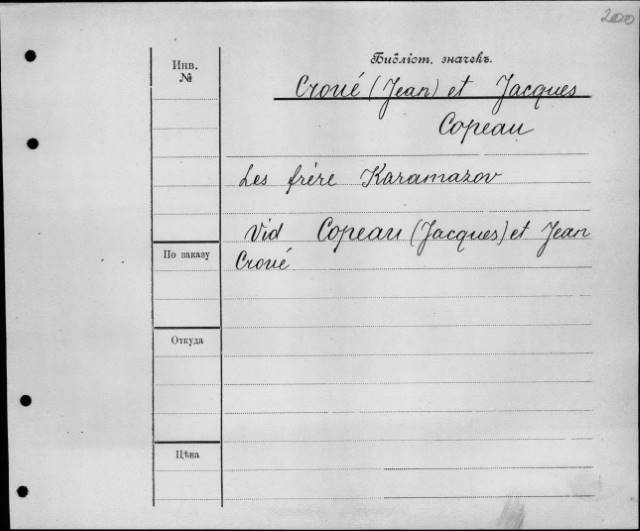 200
Библіот. значекъ.
Инв.
№
Croué (Jean) et Jacques
Copeau
Les frère Karamazov
Vid Copeau (Jacques) et Jean
Croué
По заказу
Откуда
Цѣна